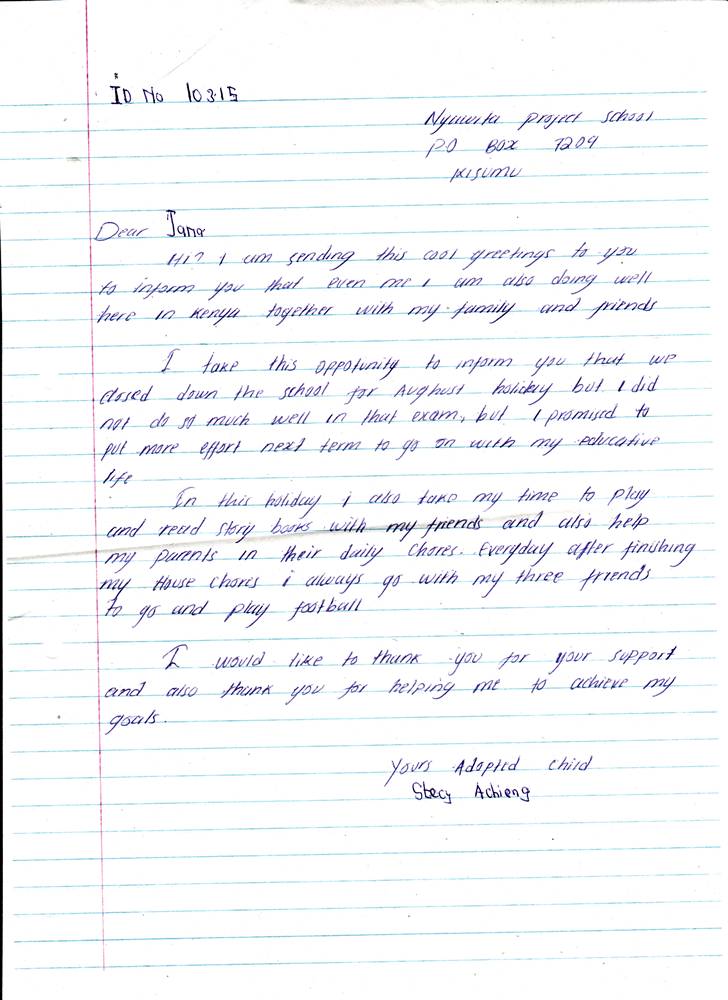 ID No 10315
Nyawita project school
PO BOX 7209
KISUMU
Dear Jana
Hi? I am sending this cool greetings to you
to inform you that even me I am also doing well
here in Kenya together with my family and friends
I take this oppotunity to inform you that we
closed down the school for Aughust holiday but I did
not do so much well in that exam, but I promised to
put more effort next term to go on with my educative
life
In this holiday i also take my time to play
and read story books with my friends and also help
my parents in their daily chores. Everyday after finishing
my House chores i always go with my three friends
to go and play football
I would like to thank you for your support
and also thank you for helping me to achieve my
goals.
Yours Adopted child
Stecy Achieng